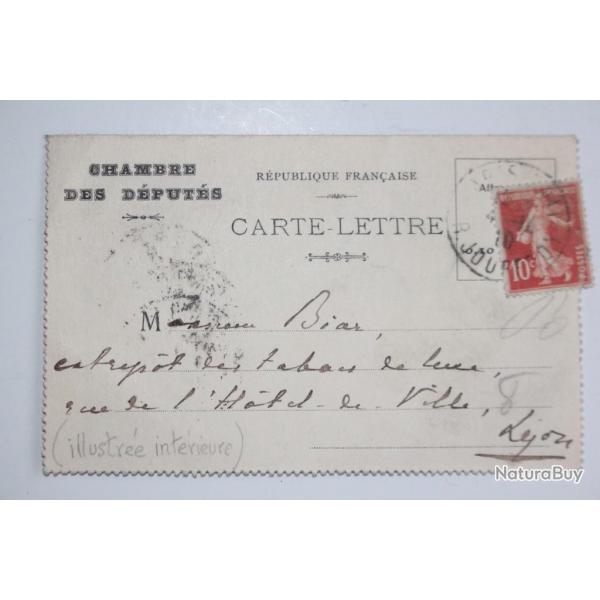 CHAMBRE
DES DÉPUTÉS
RÉPUBLIQUE FRANÇAISE
CARTE-LETTRE
10c
POSTES
Monsieur Biar,
entrepôt des tabacs de luxe,
rue de l'Hôtel-de-Ville,
Lyon
(illustrée intérieure)
NaturaBuy